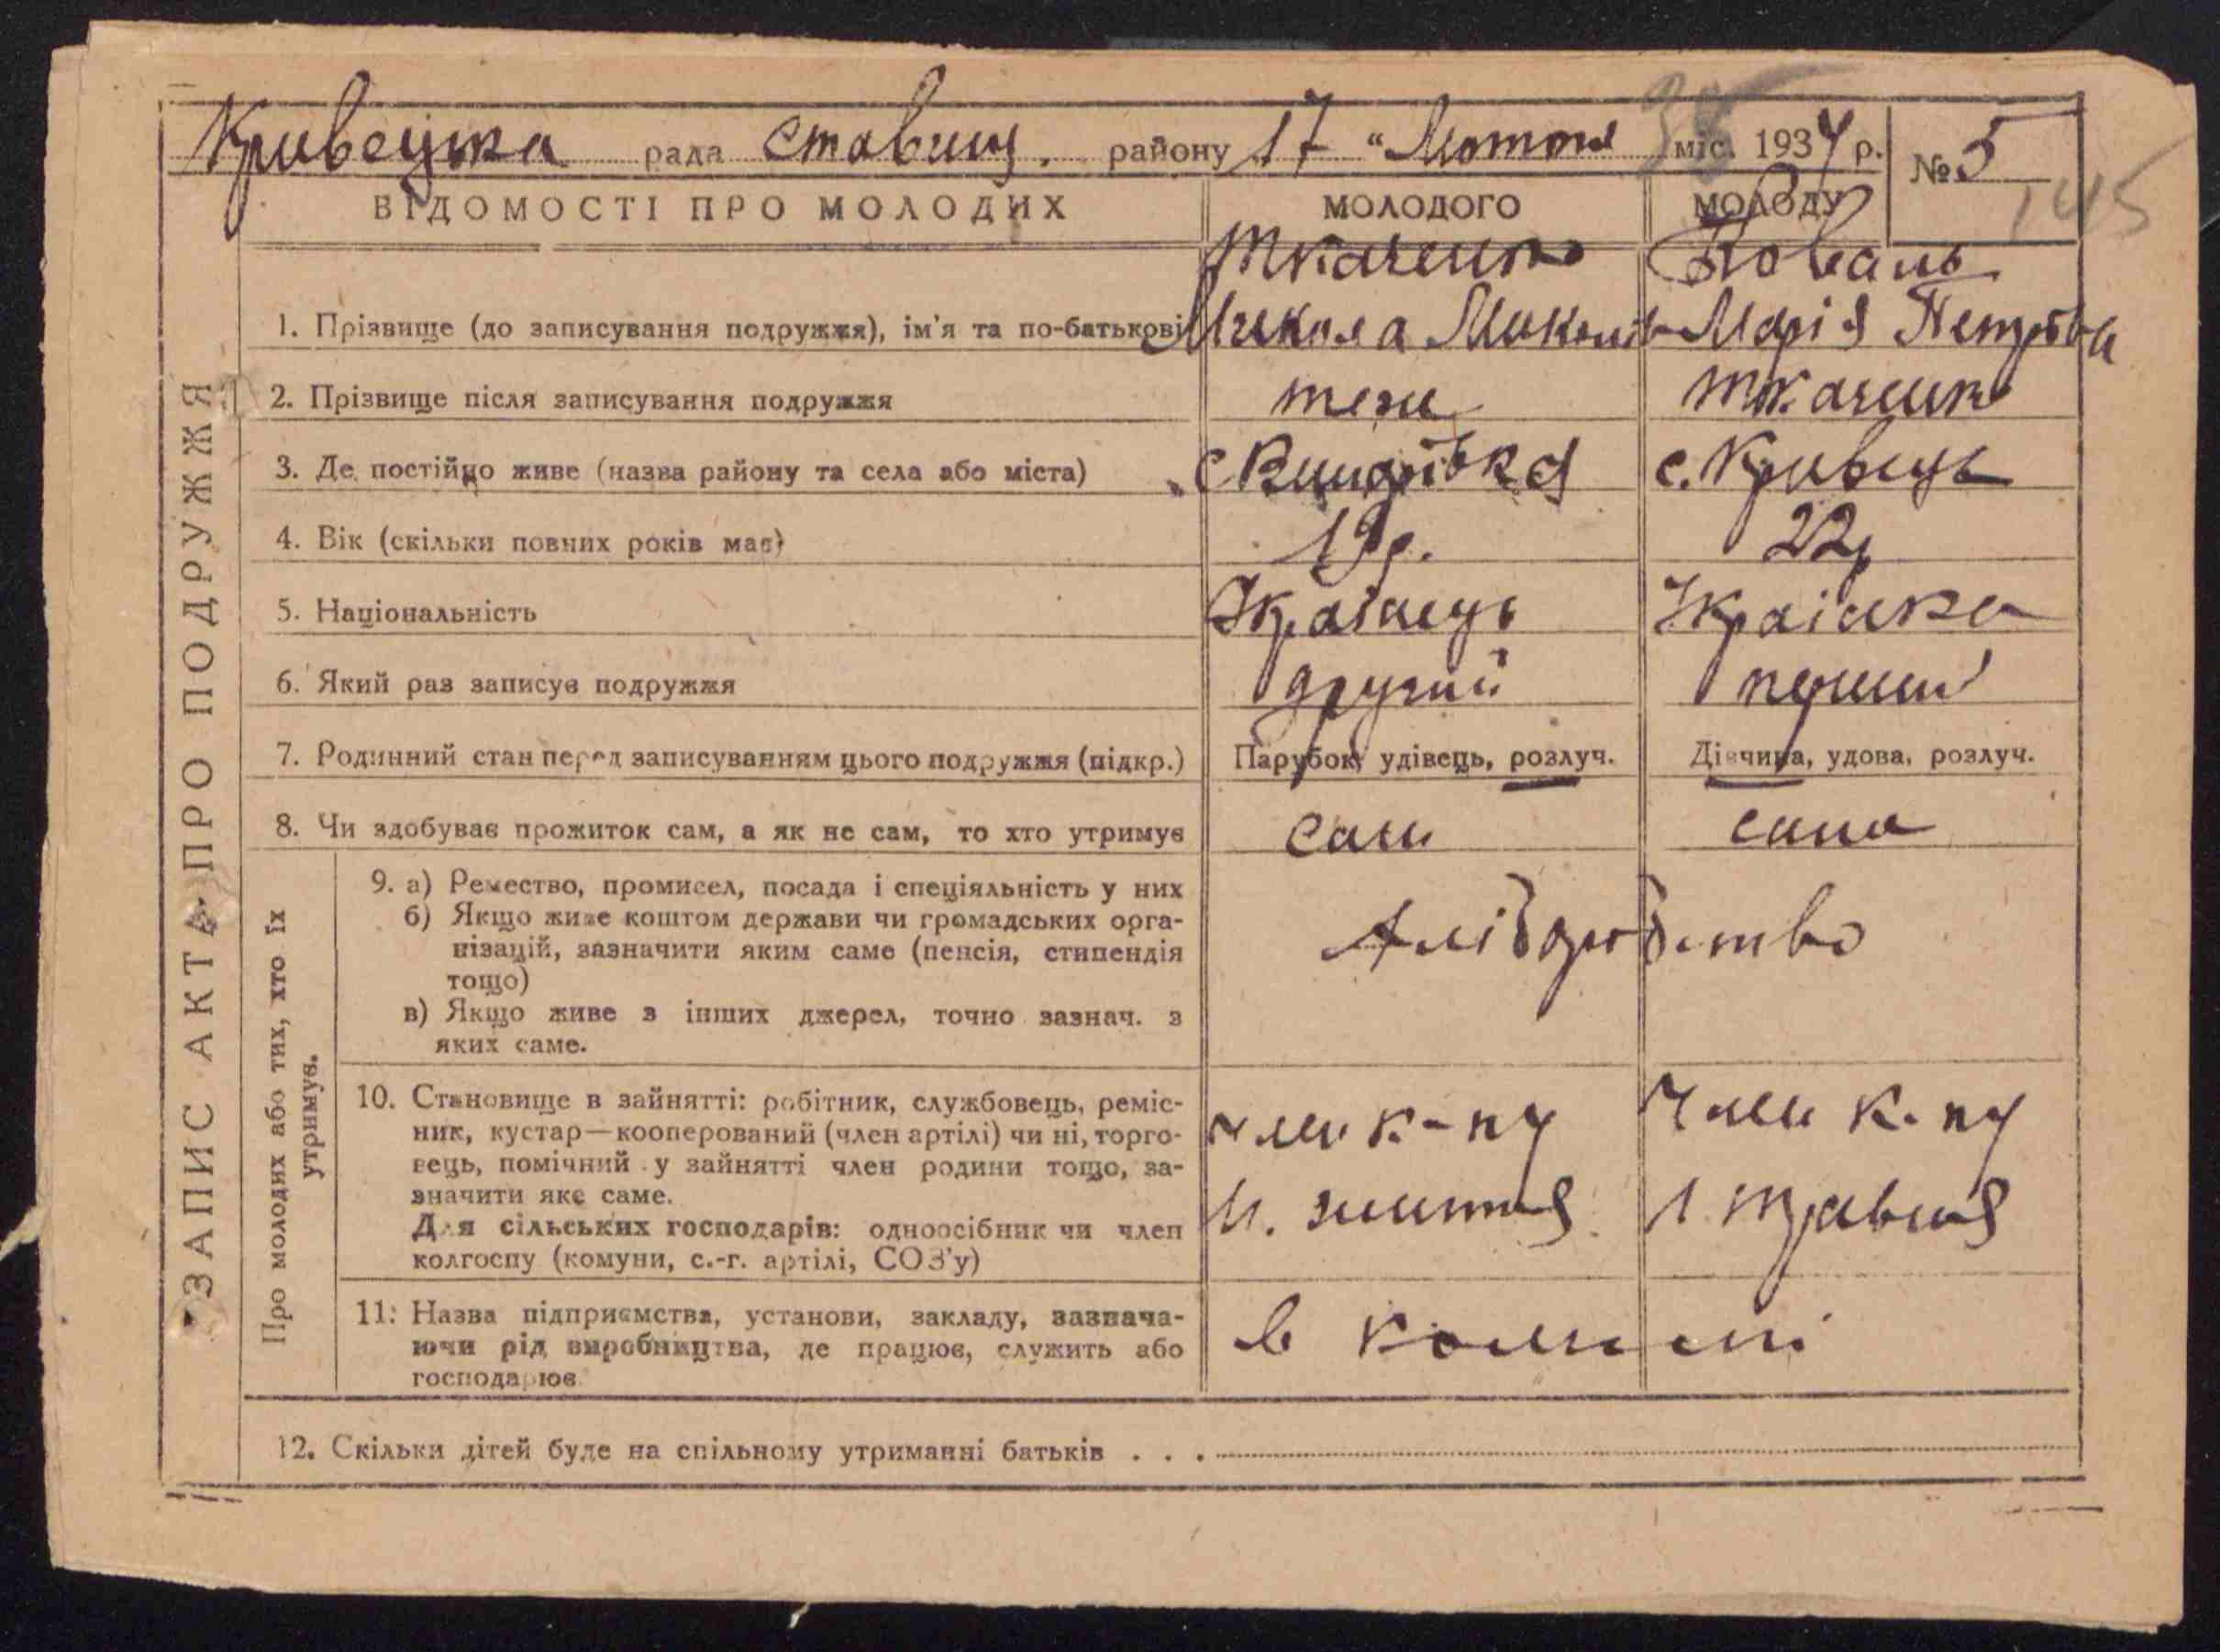 Кривецька рада Ставищ. району 17 "Лютоня міс. 1934 р. № 5
145
ВІДОМОСТІ ПРО МОЛОДИХ МОЛОДОГО МОЛОДУ
Ткаченко Коваль
1. Прізвище (до записування подружжя), ім'я та по-батькові Микола Миколов Марія Петрівна
2. Прізвище після записування подружжя теж Ткаченко
3. Де постійно живе (назва району та села або міста) с. с. Кривець
4. Вік (скільки повних років має) 19р. 22р
5. Національність Українець Українка
6. Який раз записує подружжя другий перший
7. Родинний стан перед записуванням цього подружжя (підкр.) Парубок, удівець, розлуч. Дівчина, удова, розлуч.
8. Чи здобуває прожиток сам, а як не сам, то хто утримує сам сама
ЗАПИС АКТА ПРО ПОДРУЖЖЯ
Про молодих або тих, хто їх
утримує.
9. а) Ремество, промисел, посада і спеціяльність у них
б) Якщо живе коштом держави чи громадських орга-
нізацій, зазначити яким саме (пенсія, стипендія
тощо)
в) Якщо живе з інших джерел, точно зазнач. з
яких саме.
хліборобство
10. Становище в зайнятті: робітник, службовець, реміс-
ник, кустар—кооперований (член артілі) чи ні, торго-
вець, помічний у зайнятті член родини тощо, за-
значити яке саме.
Для сільських господарів: одноосібник чи член
колгоспу (комуни, с.-г. артілі, СОЗ'у)
член к-пу член к-пу
Н. життя 1 травня
11. Назва підприємства, установи, закладу, зазнача-
ючи рід виробництва, де працює, служить або
господарює
в колгоспі
12. Скільки дітей буде на спільному утриманні батьків . . .